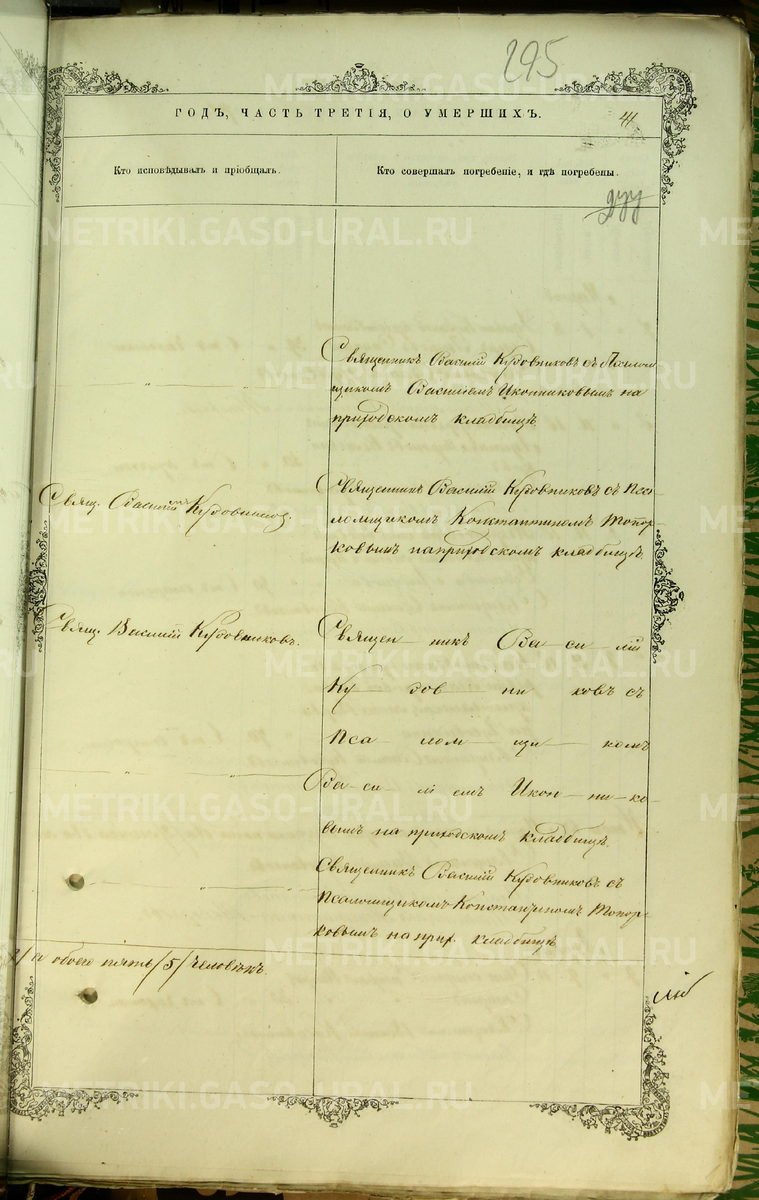 295
ГОДЪ, ЧАСТЬ ТРЕТІЯ, О УМЕРШИХЪ.
41
Кто исповѣдывалъ и пріобщалъ.
Кто совершалъ погребеніе, и гдѣ погребены.
Священникъ Василій Кудовниковъ съ псалом
щикомъ Василіемъ Иконниковымъ на
приходскомъ кладбищѣ
Свящ. Василій Кудовниковъ.
Священникъ Василій Кудовниковъ съ Пса-
ломщикомъ Константиномъ Топор-
ковымъ на приходскомъ кладбищѣ
Свящ. Василій Кудовниковъ.
Священ никъ Ва-си-лій
Ку-дов-ни-ковъ съ
Пса-лом-щи-комъ
Ва-си-лі емъ Икон-ни-ко-
вымъ на приходскомъ кладбищѣ
Священникъ Василій Кудовниковъ съ
Псаломщикомъ Константиномъ Топор-
ковымъ на прих. кладбищѣ
а обоего пять /5/ человѣкъ.
METRIKI.GASO-URAL.RU